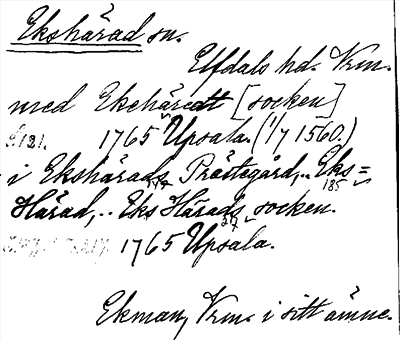 Ekshärad sn.
Elfdals hd. Vrm.
med Ekehäredt [socken]
1765 Upsala. (1/7 1560.)
i Ekshärads Prästegård,.. Eks=
185
Härad,.. Eks Härads socken.
1765 Upsala.
Ekman, Vrm. i sitt ämne.